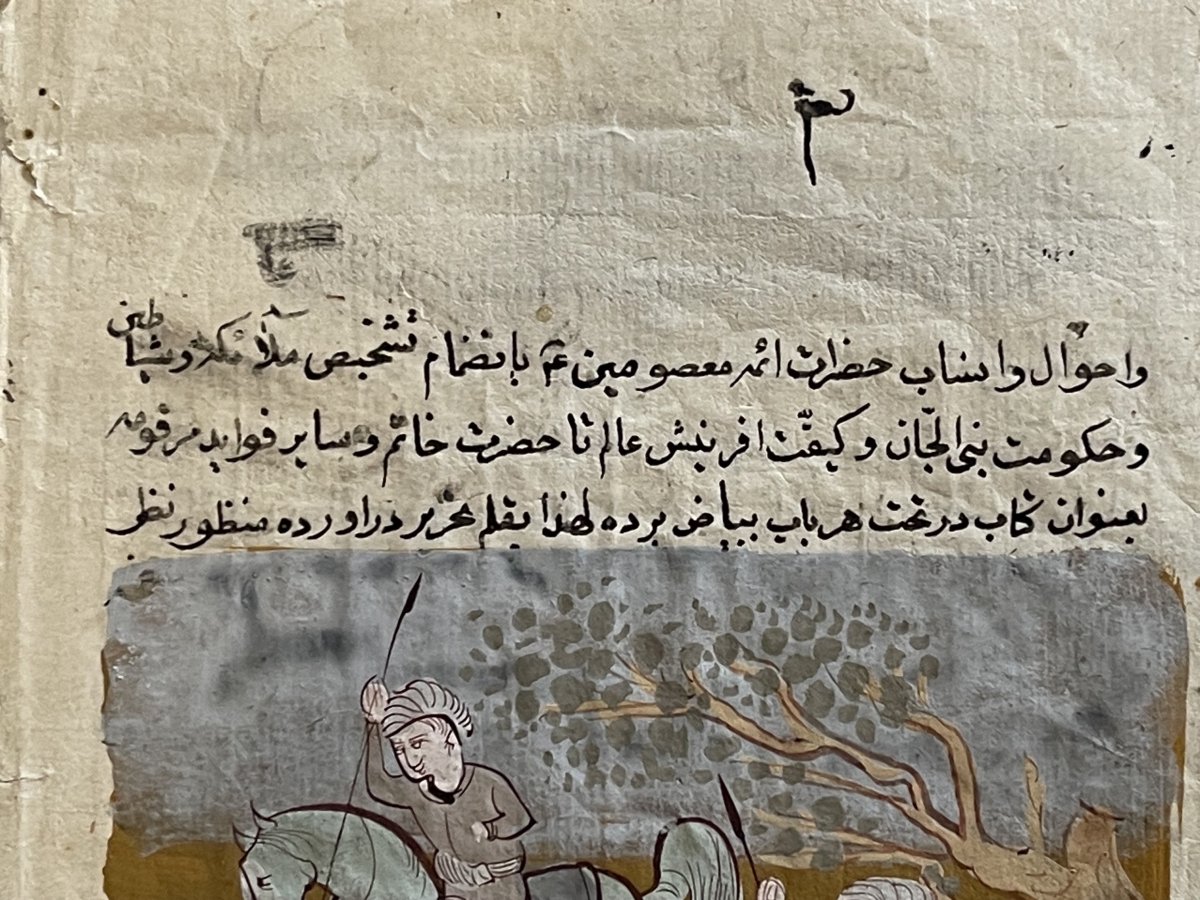 ۳
واحوال وانساب حضرات ائمه معصومین ع بانضمام تشخیص ملائکه وشیاطین
وحکومت بنی الجان وکیفیّت افرینش عالم تا حضرت خاتم وسایر فواید مرقومه
بعنوان کتاب در تحت هر باب ببیاض برده لهذا بقلم تحریر دراورده منظور نظر